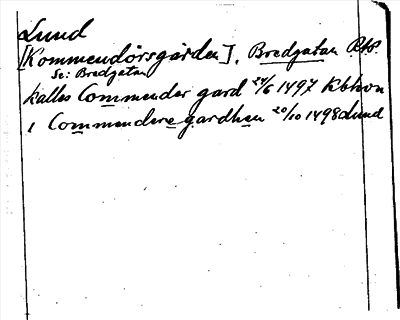 Lund
[Kommendörsgården], Bredgatan
Se: Bredgatan
kalles Commender gard 24/6 1497 Kbhvn
i Commendere gardhen 20/10 1498 Lund